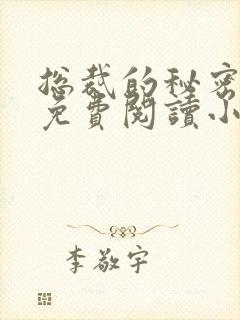 总裁的秘密
免費閱讀小
李敬宇